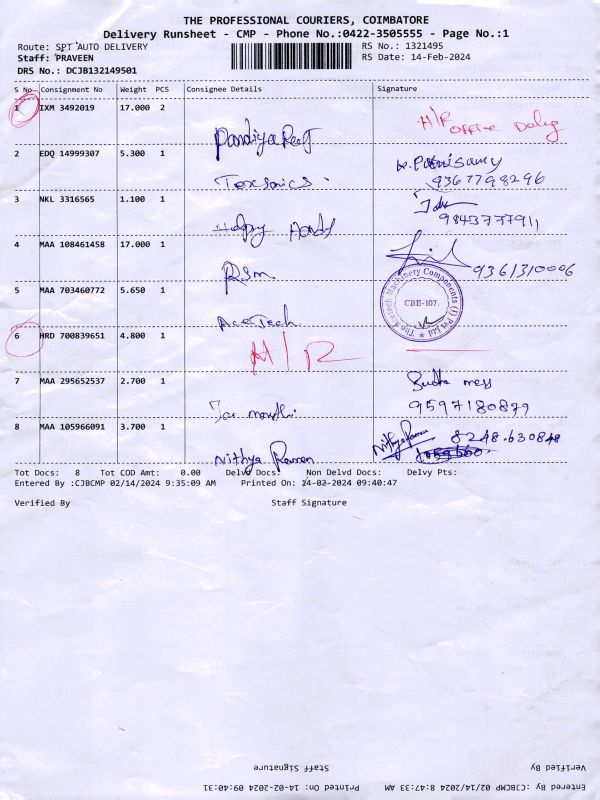 THE PROFESSIONAL COURIERS, COIMBATORE
Delivery Runsheet - CMP - Phone No.:0422-3505555 - Page No.:1
Route: SPT AUTO DELIVERY RS No.: 1321495
Staff: PRAVEEN RS Date: 14-Feb-2024
DRS No.: DCJB132149501
S No Consignment No Weight PCS Consignee Details Signature
1 IXM 3492019 17.000 2
H/R office Delvy
Pandiya
2 EDQ 14999307 5.300 1
9367798296
3 NKL 3316565 1.100 1
9843777911
Happy
4 MAA 108461458 17.000 1
9361310006
RSM
5 MAA 703460772 5.650 1
CBE-107.
AceTech
6 HRD 700839651 4.800 1
7 MAA 295652537 2.700 1
9597180879
8 MAA 105966091 3.700 1
8248.630848
Nithya Raman
Tot Docs: 8 Tot COD Amt: 0.00 Delvd Docs: Non Delvd Docs: Delvy Pts:
Entered By :CJBCMP 02/14/2024 9:35:09 AM Printed On: 14-02-2024 09:40:47
Verified By Staff Signature
Verified By Staff Signature
Entered By :CJBCMP 02/14/2024 8:47:33 AM Printed On: 14-02-2024 09:40:31